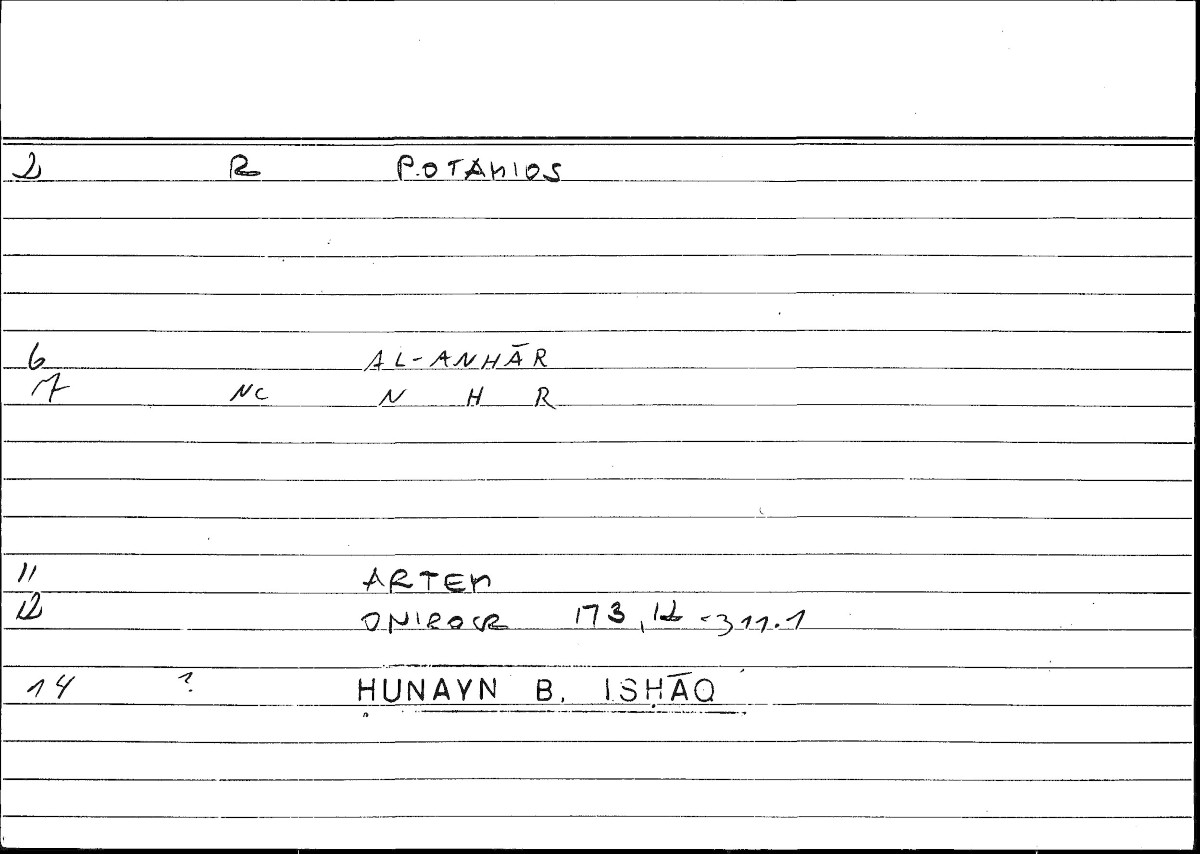 2 R POTAMIOS
6 AL-ANHĀR
7 NC N H R
11 ARTEM
12 ONIROCR 173,12-311.1
14 ? ḤUNAYN B. ISḤĀQ